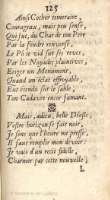 125
Ainsi Cocher temeraire,
Courageux, mais peu sensé,
Qui fut, du Char de son Pere
Par la foudre renversé,
Le Phose vid sur les rives,
Par les Nayades plaintives,
Eriger un Monument,
Quand un éclat effroyable,
Eut étendu sur le sable,
Ton Cadavre encor fumant.
Mais, adieu, belle Déesse,
Vostre Soeur, se fait noir,
Je sens que l'heure me presse,
Il faut remplir mon devoir:
Je vous d'un récit fidelle,
Charmer par cette nouvelle,
L